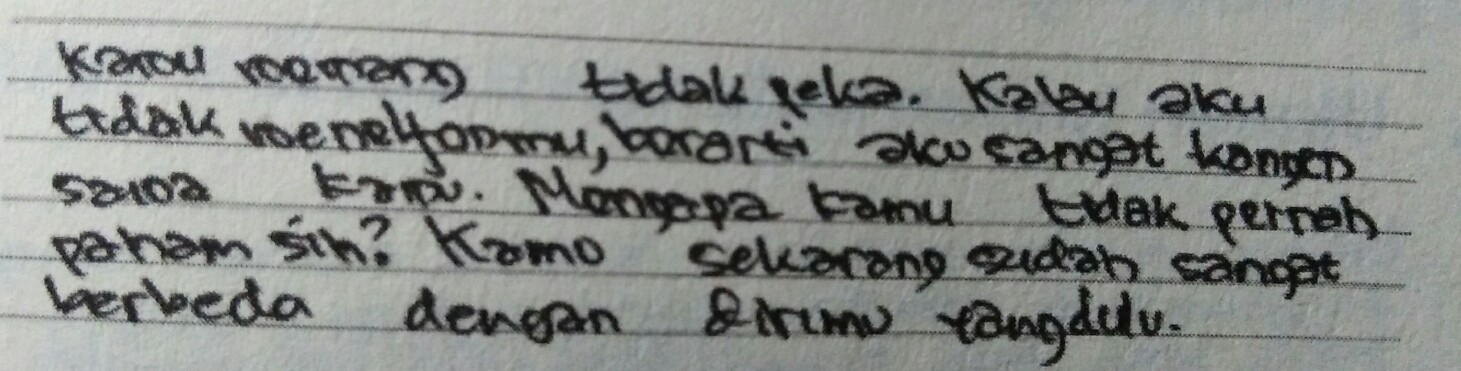 Kamu memang tidak peka. Kalau aku
tidak menelfonmu, berarti aku sangat kangen
sama kamu. Mengapa kamu tidak pernah
paham sih? Kamu sekarang sudah sangat
berbeda dengan dirimu yang dulu.